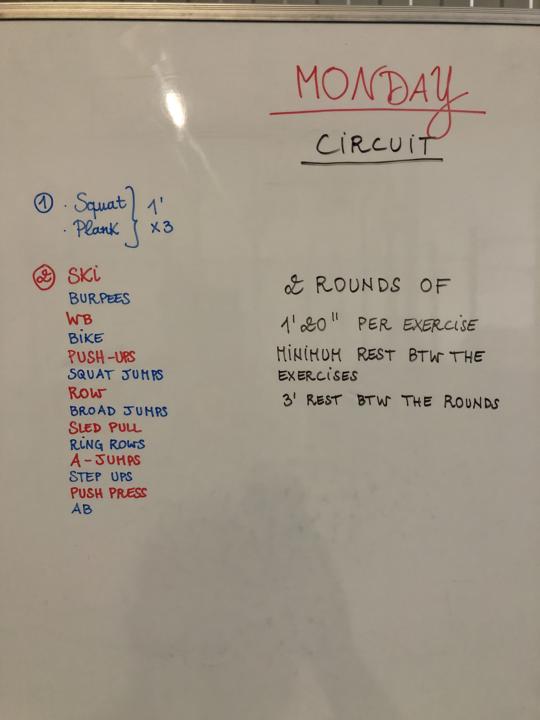 MONDAY
CiRCUiT
① · Squat } 1'
· Plank } x3
② SKi
BURPEES
WB
BiKE
PUSH-UPS
SQUAT JUMPS
ROW
BROAD JUMPS
SLED PULL
RiNG ROWS
A-JUMPS
STEP UPS
PUSH PRESS
AB
2 ROUNDS OF
1'20" PER EXERCiSE
MiNiMUM REST BTW THE
EXERCiSES
3' REST BTW THE ROUNDS